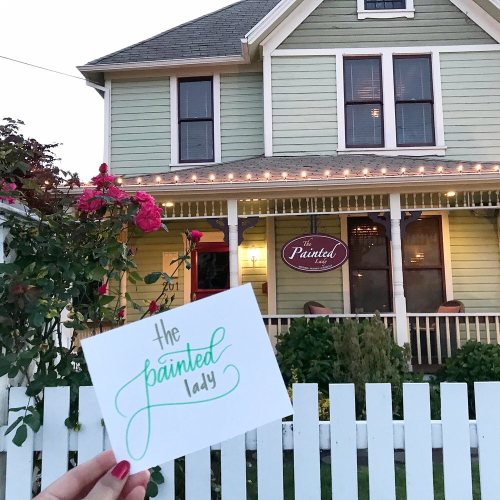 The
Painted
Lady
201
the
painted
lady